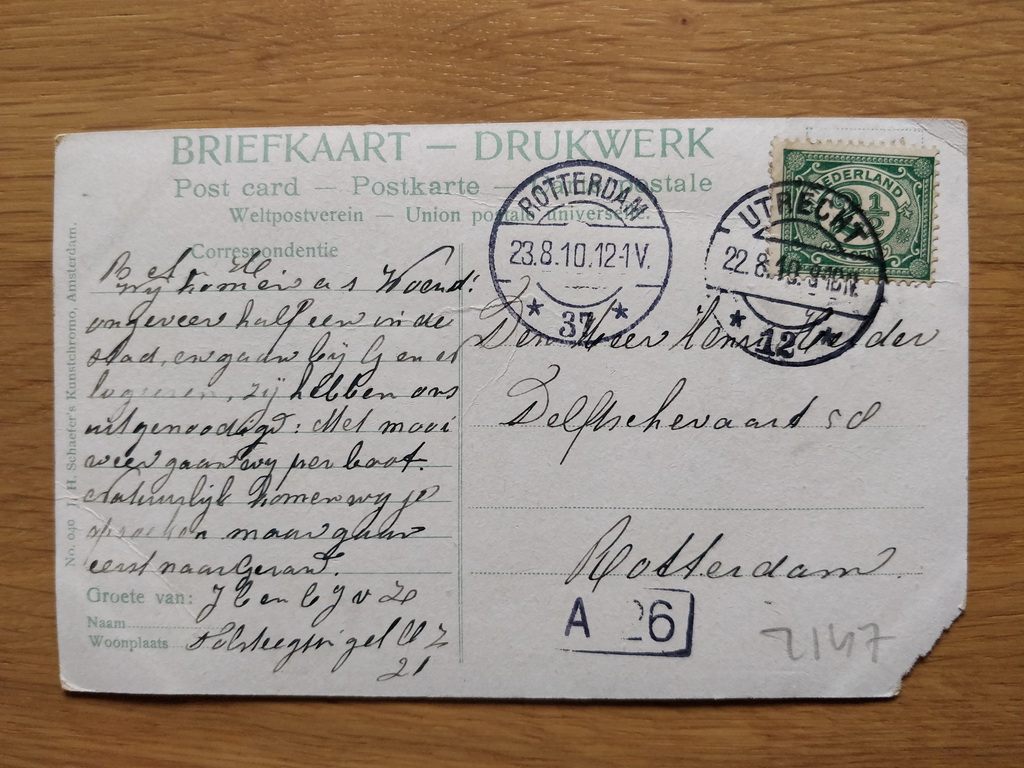 BRIEFKAART — DRUKWERK
Post card — Postkarte — postale
Weltpostverein — Union postale universelle.
Correspondentie
NEDERLAND
2½
ROTTERDAM
23.8.10.12-1V.
* 37 *
UTRECHT
22.8.10. 9-10N.
* 12 *
Wij komen a s Woend:
ongeveer half een in de
stad, en gaan bij G en
logeeren, zij hebben ons
uitgenoodigd: Met mooi
weer gaan wij per boot.
Natuurlijk komen wij je
maar gaan
eerst naar Gerard.
Groete van:
Naam
Woonplaats
21
Den Heer
Delftschevaart 58
Rotterdam.
A 26
2147
No. 040 H. H. Schaefer's Kunstchromo, Amsterdam.